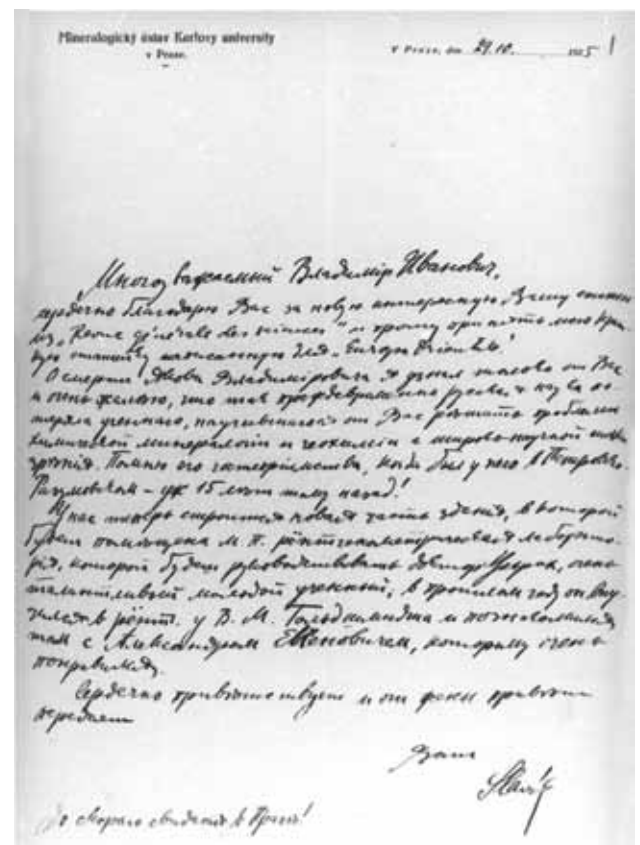 Mineralogický ústav Karlovy university
v Praze.
V Praze, dne 29.10. 1925
Многоуважаемый Владимір Иванович,
сердечно благодарю Вас за новую интересную Вашу статью
из „Revue générale des sciences“ и прошу принять мою
статью
О смерти Владиміровича я узнал только от Вас
и очень жалею, что так преждевременно наука
ученого, научившагося от Вас проблемы
химической минералогіи и геохиміи с научной точки
зрѣнія. Помню его гостепріимство, когда был у него в
— уж 15 лѣт тому назад!
У нас теперь строится новая часть зданія, в которой
будет помѣщена м. п. рентгенометрическая лаборато-
рія, которой будет руководствовать доктор очень
талантливый молодой ученный; в прошлом году он
у В. М. Гольдшмидта и познакомился
там с Александром Евгеновичем, которому очень
понравился.
Сердечно привѣтствует и от жены привѣты
передает
Ваш
Slavík
До скораго свиданія в Прагѣ!